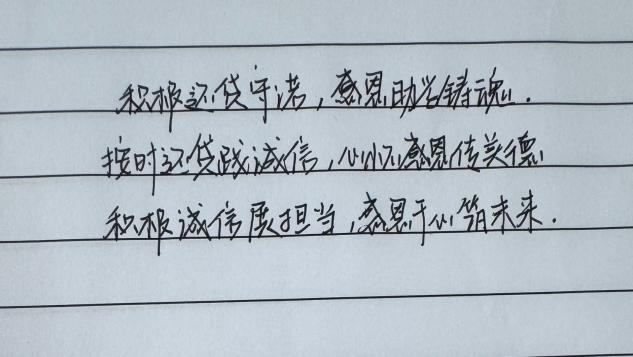 积极还贷守诺，感恩助学铸魂．
按时还贷践诚信，心怀感恩传美德
积极诚信展担当，感恩于心筑未来．